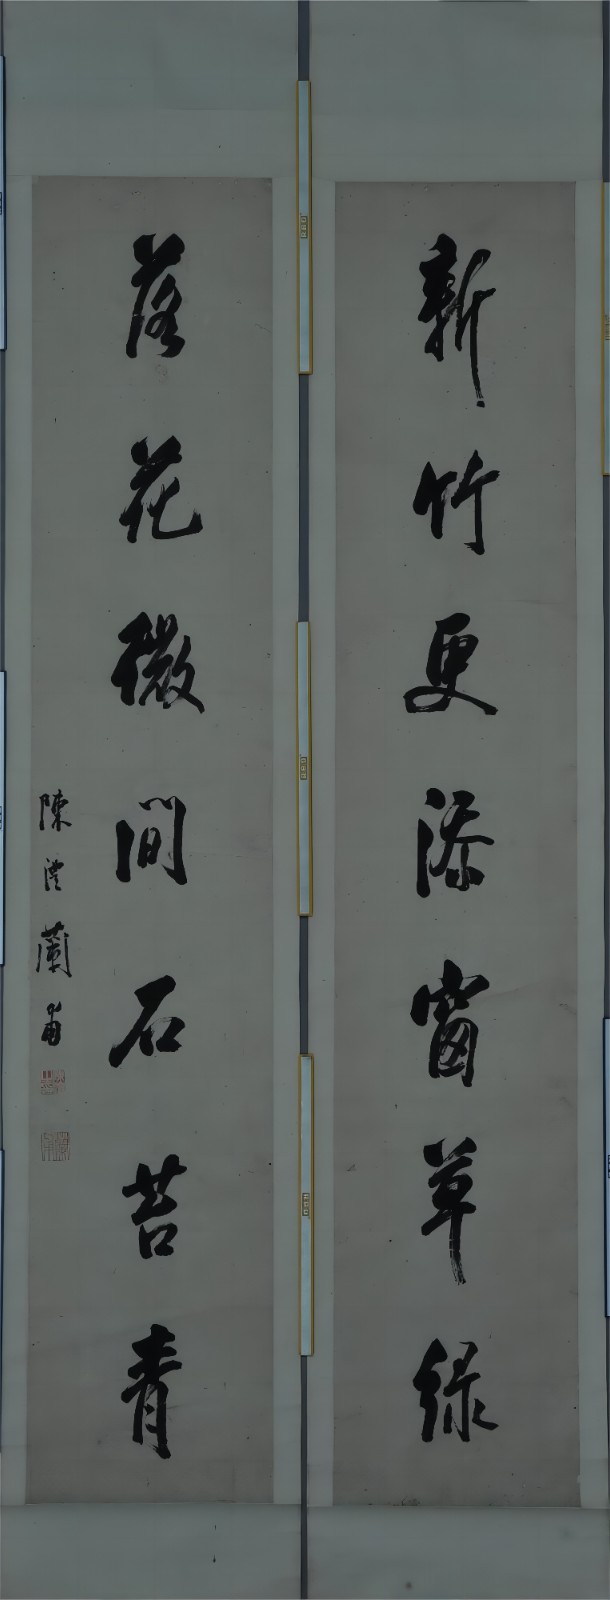 新竹更添窗草綠
落花微間石苔青
陳澧蘭甫